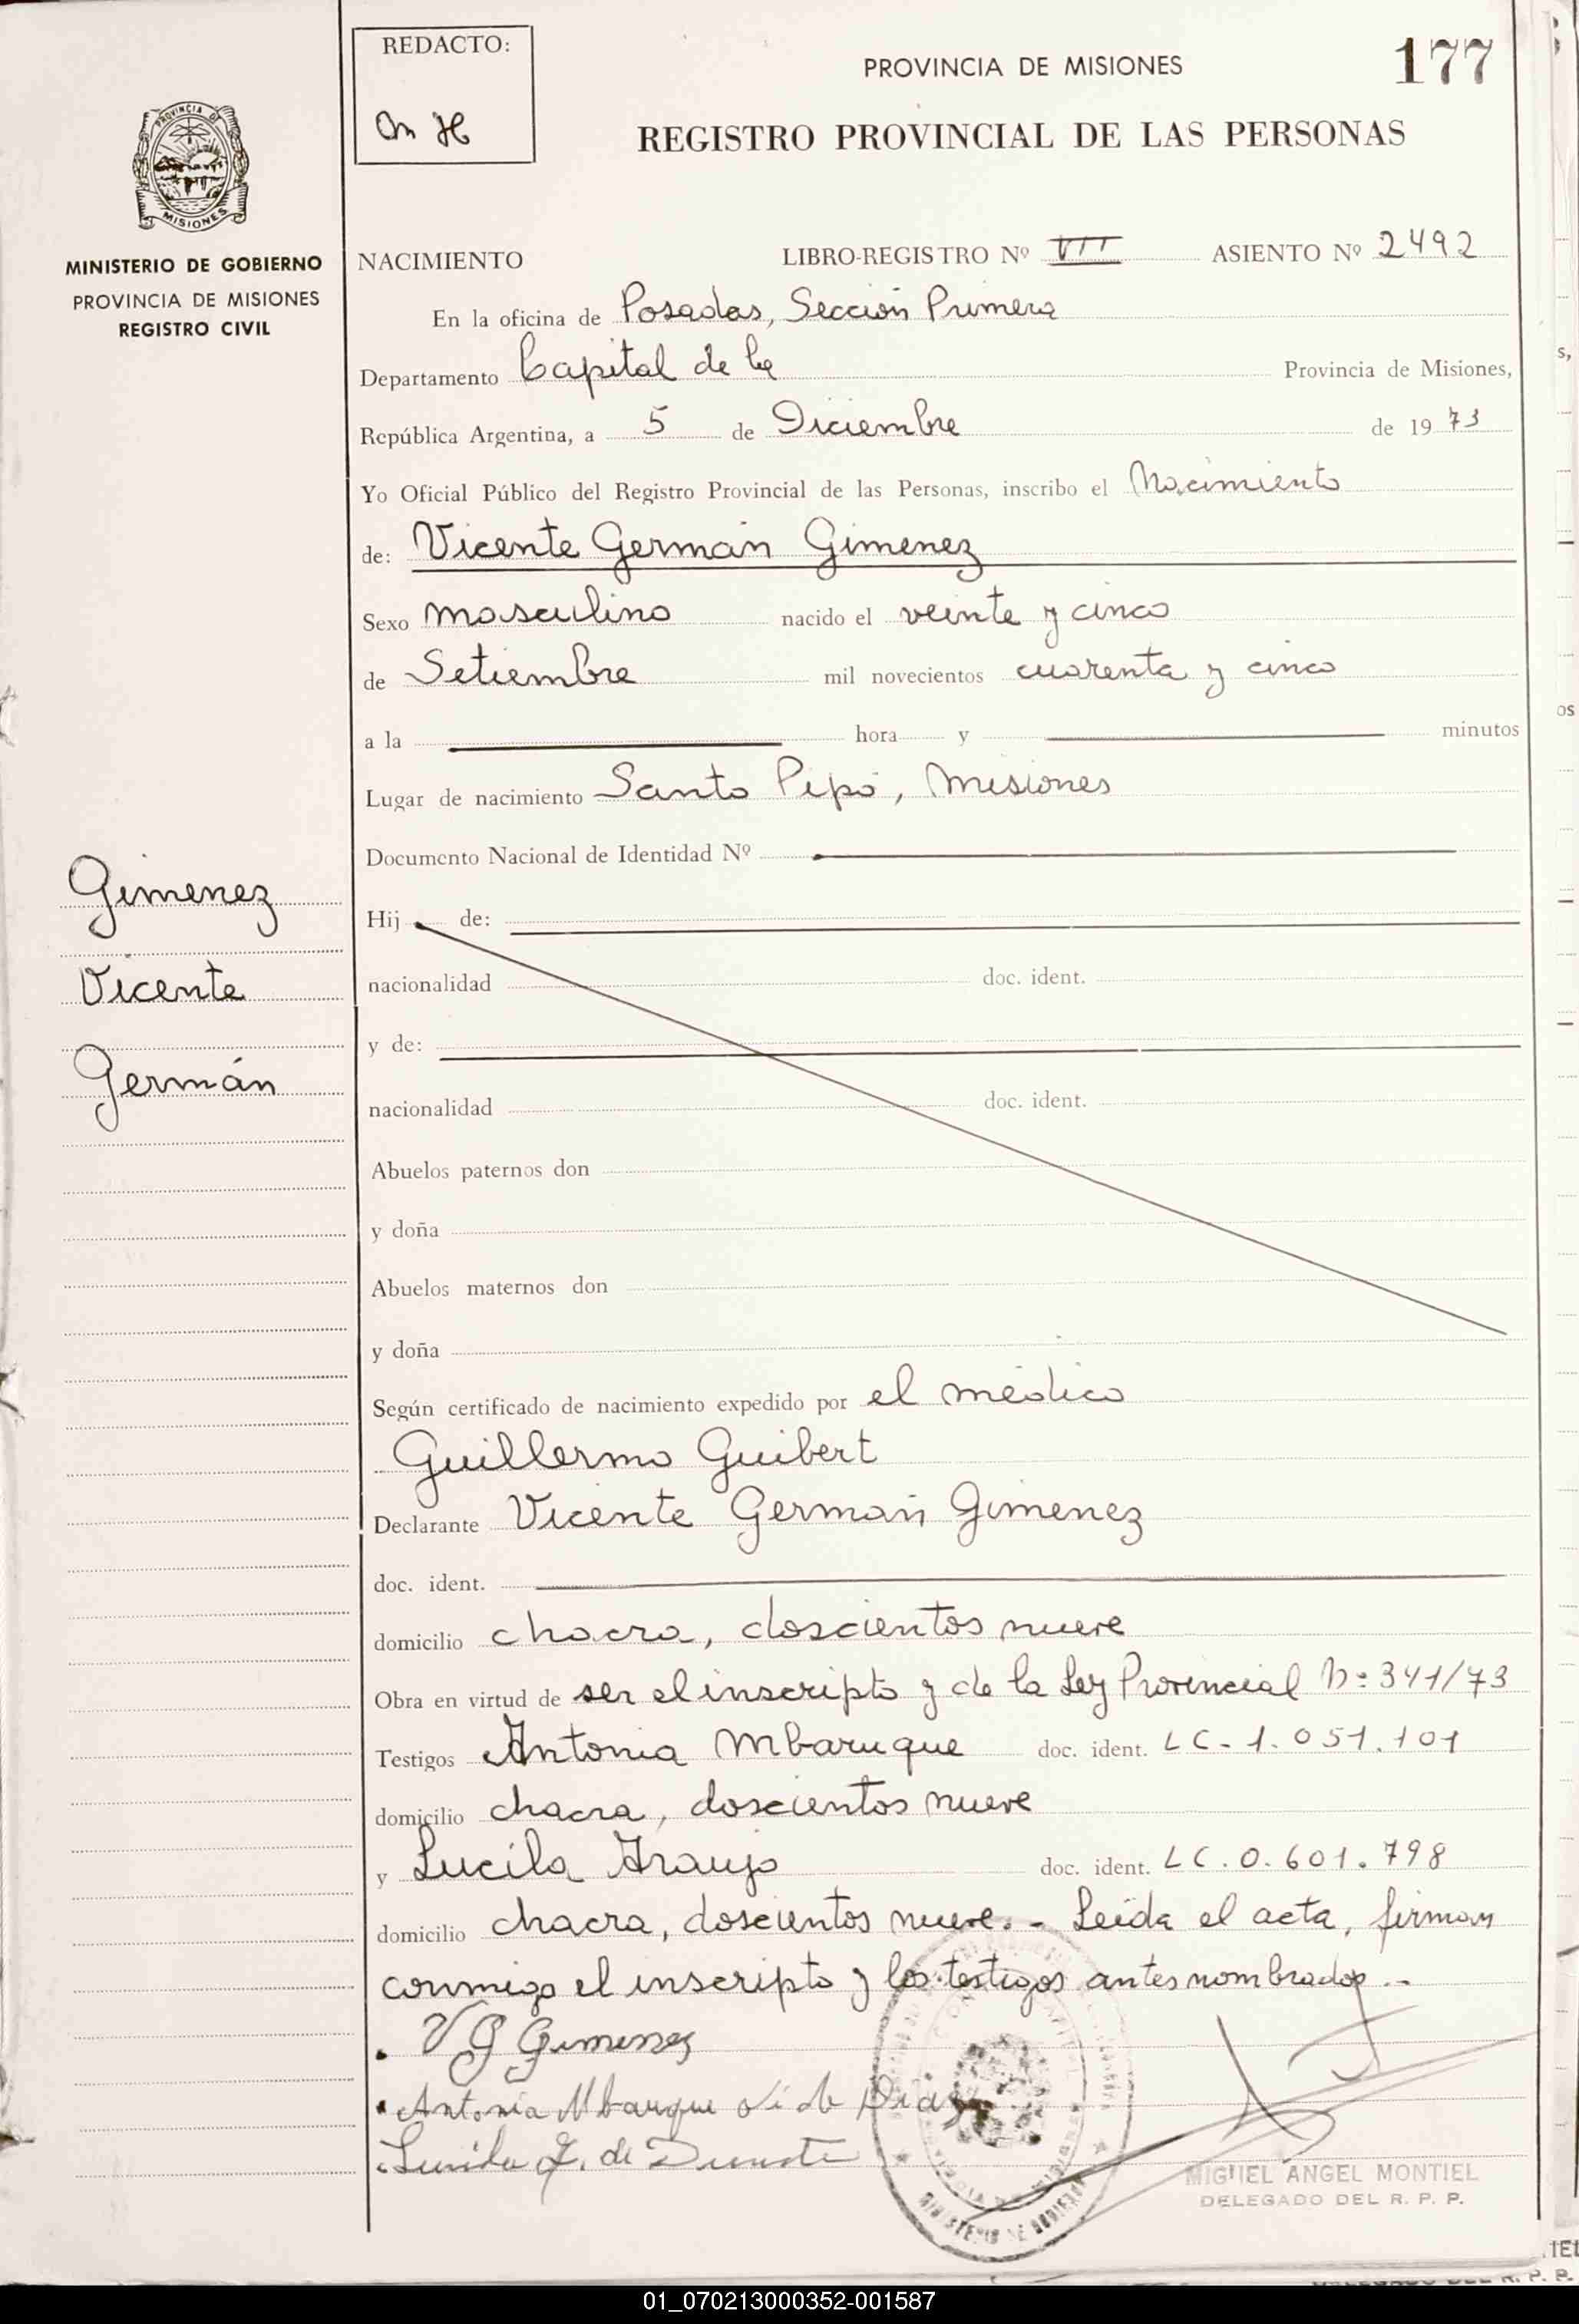 REDACTO:
PROVINCIA DE MISIONES
177
REGISTRO PROVINCIAL DE LAS PERSONAS
PROVINCIA DE
MISIONES
MINISTERIO DE GOBIERNO
PROVINCIA DE MISIONES
REGISTRO CIVIL
NACIMIENTO LIBRO-REGISTRO Nº VII ASIENTO Nº 2492
En la oficina de Posadas, Sección Primera
Departamento Capital de la Provincia de Misiones,
República Argentina, a 5 de Diciembre de 1973
Yo Oficial Público del Registro Provincial de las Personas, inscribo el Nacimiento
de: Vicente Germán Gimenez
Sexo masculino nacido el veinte y cinco
de Setiembre mil novecientos cuarenta y cinco
a la hora y minutos
Lugar de nacimiento Santo Pipó, Misiones
Documento Nacional de Identidad Nº
Gimenez
Vicente
Germán
Hij de:
nacionalidad doc. ident.
y de:
nacionalidad doc. ident.
Abuelos paternos don
y doña
Abuelos maternos don
y doña
Según certificado de nacimiento expedido por el médico
Guillermo Guibert
Declarante Vicente Germán Gimenez
doc. ident.
domicilio chacra, doscientos nueve
Obra en virtud de ser el inscripto y de la Ley Provincial Nº 341/73
Testigos Antonia Mbaruque doc. ident. LC - 1.051.101
domicilio chacra, doscientos nueve
y Lucila Araujo doc. ident. LC.0.601.798
domicilio chacra, doscientos nueve. - Leída el acta, firman
conmigo el inscripto y los testigos antes nombrados.-
V G Gimenez
Antonia Mbaruque de Diaz
de
MINISTERIO DE GOBIERNO
MIGUEL ANGEL MONTIEL
DELEGADO DEL R. P. P.
01_070213000352-001587